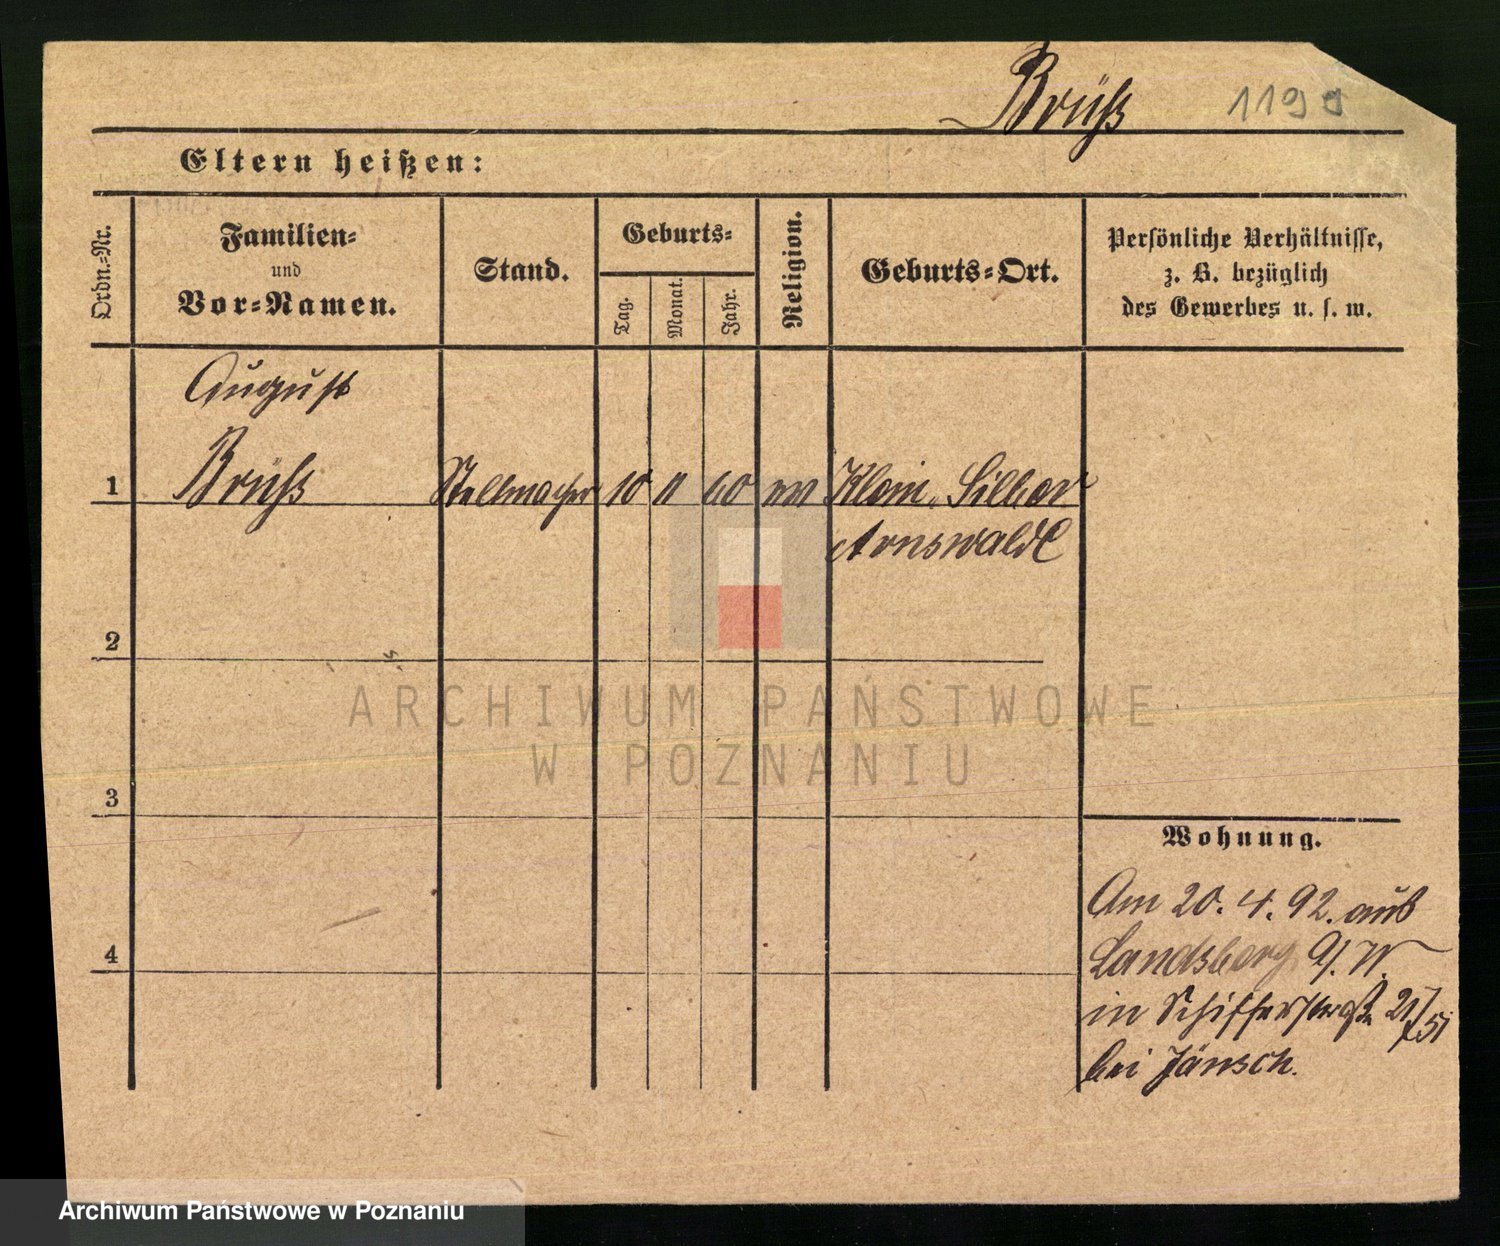 Brüß 1199
Eltern heißen:
Ordn.-Nr.
Familien-
und
Vor-Namen.
Stand.
Geburts-
Tag.
Monat.
Jahr.
Religion.
Geburts-Ort.
Persönliche Verhältnisse,
z. B. bezüglich
des Gewerbes u. s. w.
August
1 Brüß Stellmacher 10 11 60 ev Klein Silber
Arnswalde
2
ARCHIWUM PAŃSTWOWE
W POZNANIU
3
Wohnung.
Am 20. 4. 92. aus
4 Landsberg a/W.
in Schifferstraße 21/
bei Jänsch.
Archiwum Państwowe w Poznaniu